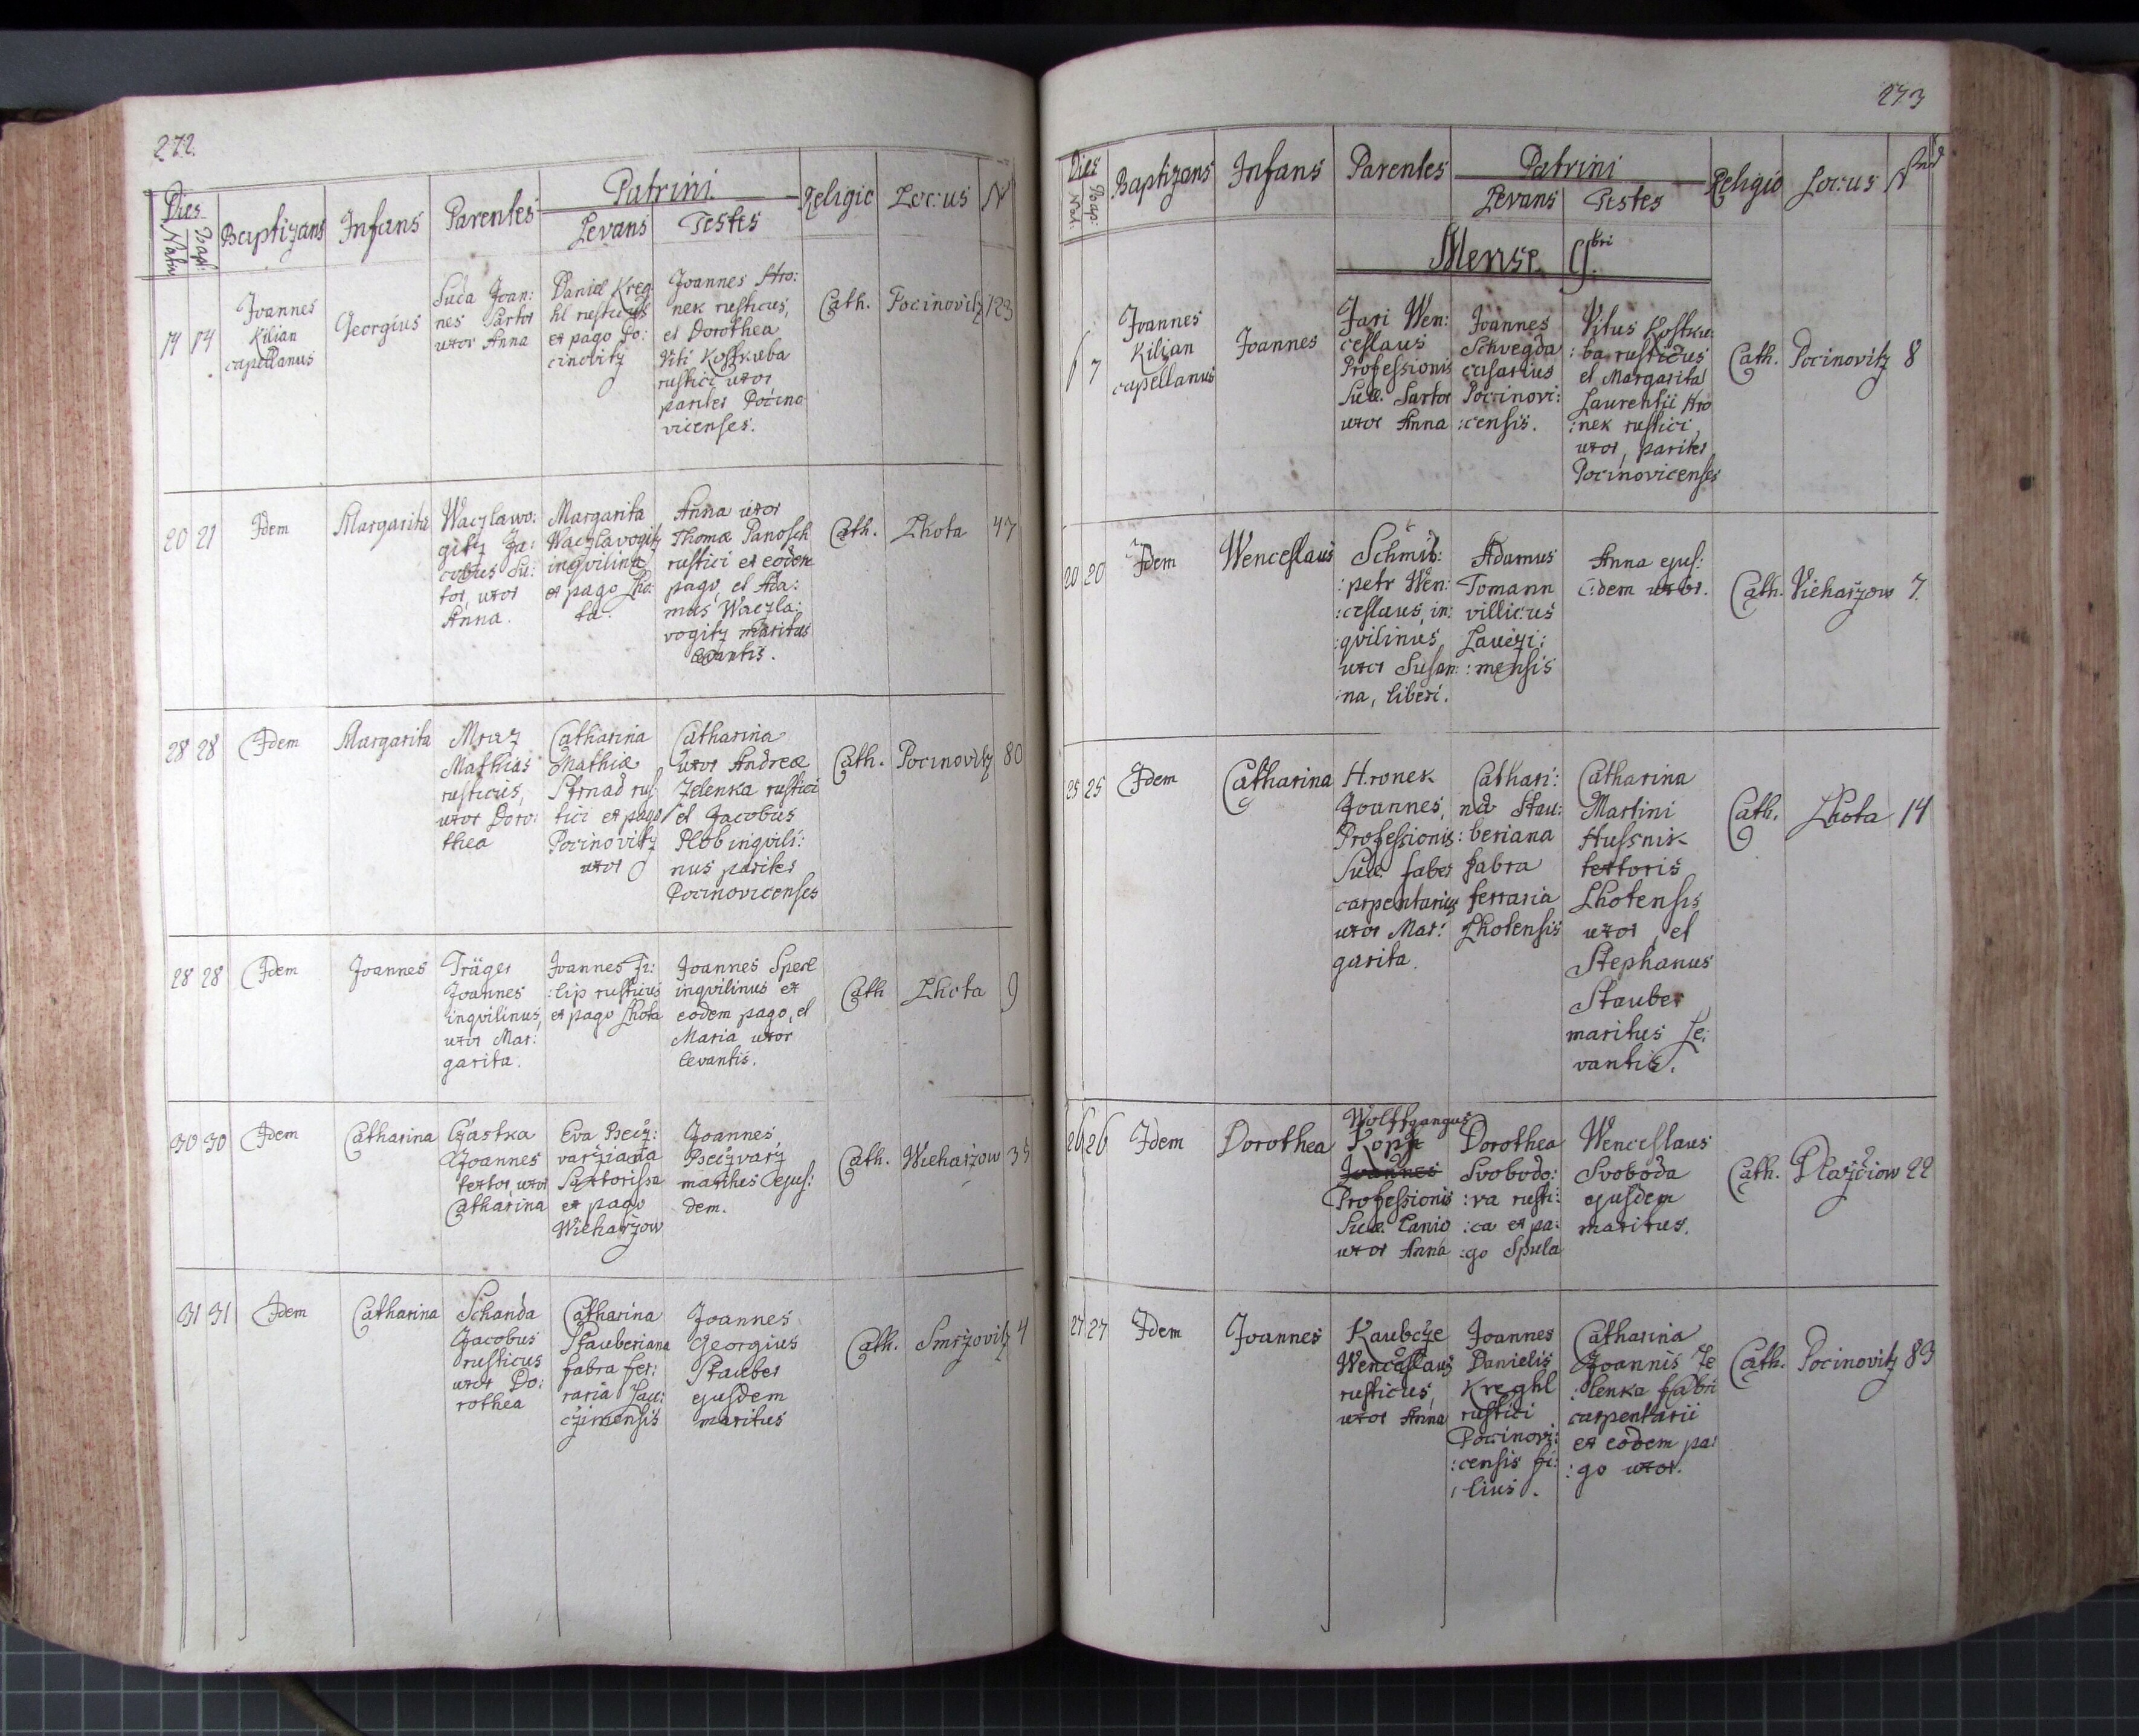 272.
Dies
Natus
Bapt:
Baptizans
Infans
Parentes
Patrini.
Levans
Testes
Religio
Locus
N
14
14
Joannes
Kilian
capellanus
Georgius
Suda Joan:
nes Sartor
uxor Anna
Daniel Kreg
hl rusticus
ex pago Po:
cinovitz
Joannes Hro:
nek rusticus,
et Dorothea
Viti Kostkuba
rustici uxor,
pariter Pocino
vicenses.
Cath.
Pocinovitz
123
20
21
Idem
Margarita
Waczlawo:
gitz Ja:
cobus Su:
tor, uxor
Anna.
Margarita
Waczlavogitz
inqvilina
ex pago Lho:
ta.
Anna uxor
Thomæ Panosch
rustici ex eodem
pago, et Ada:
mus Waczla:
vogitz maritus
levantis.
Cath.
Lhota
47
28
28
Idem
Margarita
Mraz
Mathias
rusticus,
uxor Doro:
thea
Catharina
Mathiæ
Strnad rus
tici ex pago
Pocinovitz
uxor
Catharina
uxor Andreæ
Zelenka rustici
et Jacobus
Plob inqvili:
nus pariter
Pocinovicenses
Cath.
Pocinovitz
80
28
28
Idem
Joannes
Träger
Joannes
inqvilinus,
uxor Mar:
garita.
Joannes Fi:
:lip rusticus
ex pago Lhota
Joannes Sperl
inqvilinus ex
eodem pago, et
Maria uxor
levantis.
Cath
Lhota
9
30
30
Idem
Catharina
Czastka
Joannes
textor, uxor
Catharina
Eva Becz:
varziana
Sartorissa
ex pago
Wieharzow
Joannes
Beczvarz
maritus ejus:
dem.
Cath.
Wieharzow
35
31
31
Idem
Catharina
Schanda
Jacobus
rusticus
uxor Do:
rothea
Catharina
Stauberiana
fabra fer:
raria Lau:
czimensis
Joannes
Georgius
Stauber
ejusdem
maritus
Cath.
Smrzovitz
4
273
Dies
Nat:
Bap:
Baptizans
Infans
Parentes
Patrini
Levans
Testes
Religio
Locus
Nus
Mense 9bri
6
7
Joannes
Kilian
capellanus
Joannes
Jari Wen:
ceslaus
Professionis
Suæ. Sartor
uxor Anna
Joannes
Schvegda
casarius
Pocinovi:
:censis.
Vitus Kostku:
:ba rusticus
et Margarita
Laurentii Hro
:nek rustici
uxor, pariter
Pocinovicenses
Cath.
Pocinovitz
8
20
20
Idem
Wenceslaus
Schmid:
:petr Wen:
:ceslaus, in:
:qvilinus,
uxor Susan:
:na, liberi.
Adamus
Tomann
villicus
Lauczi:
:mensis
Anna ejus:
:dem uxor.
Cath.
Vieharzow
7.
25
25
Idem
Catharina
Hronek
Joannes,
Professionis:
Suæ. faber
carpentarius
uxor Mar:
garita.
Cathari:
na Stau:
beriana
fabra
ferraria
Lhotensis
Catharina
Martini
Hussnik
textoris
Lhotensis
uxor, et
Stephanus
Stauber
maritus Le:
vantis.
Cath.
Lhota
14
26
26
Idem
Dorothea
Wolffgangus
Kopp
Joannes
Professionis
Suæ. Lanio
uxor Anna
Dorothea
Svobodo:
:va rusti:
:ca ex pa:
:go Spula
Wenceslaus
Svoboda
ejusdem
maritus.
Cath.
Plazdiow
22
27
27
Idem
Joannes
Kaubcze
Wenceslaus
rusticus,
uxor Anna
Joannes
Danielis
Kreghl
rustici
Pocinovi:
:censis fi:
:lius.
Catharina
Joannis Ze
:lenka fabri
carpentarii
ex eodem pa:
:go uxor.
Cath.
Pocinovitz
83